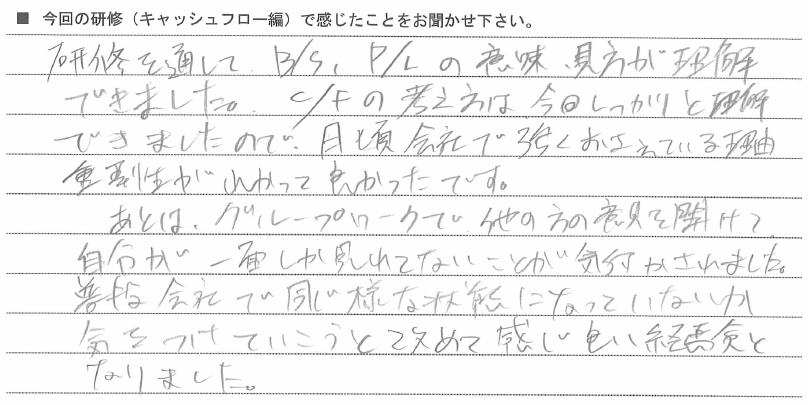 ■ 今回の研修（キャッシュフロー編）で感じたことをお聞かせ下さい。
研修を通して、B/S、P/Lの意味、見方が理解
できました。C/Fの考え方は今回しっかりと理解
できましたので、日頃会社で強くおさえている理由
重要性がわかって良かったです。
あとは、グループワークで他の方の意見を聞けて
自分が一面しか見れてないことが気付かされました。
普段会社で同じ様な状態になっていないか
気をつけていこうと改めて感じ良い経験と
なりました。